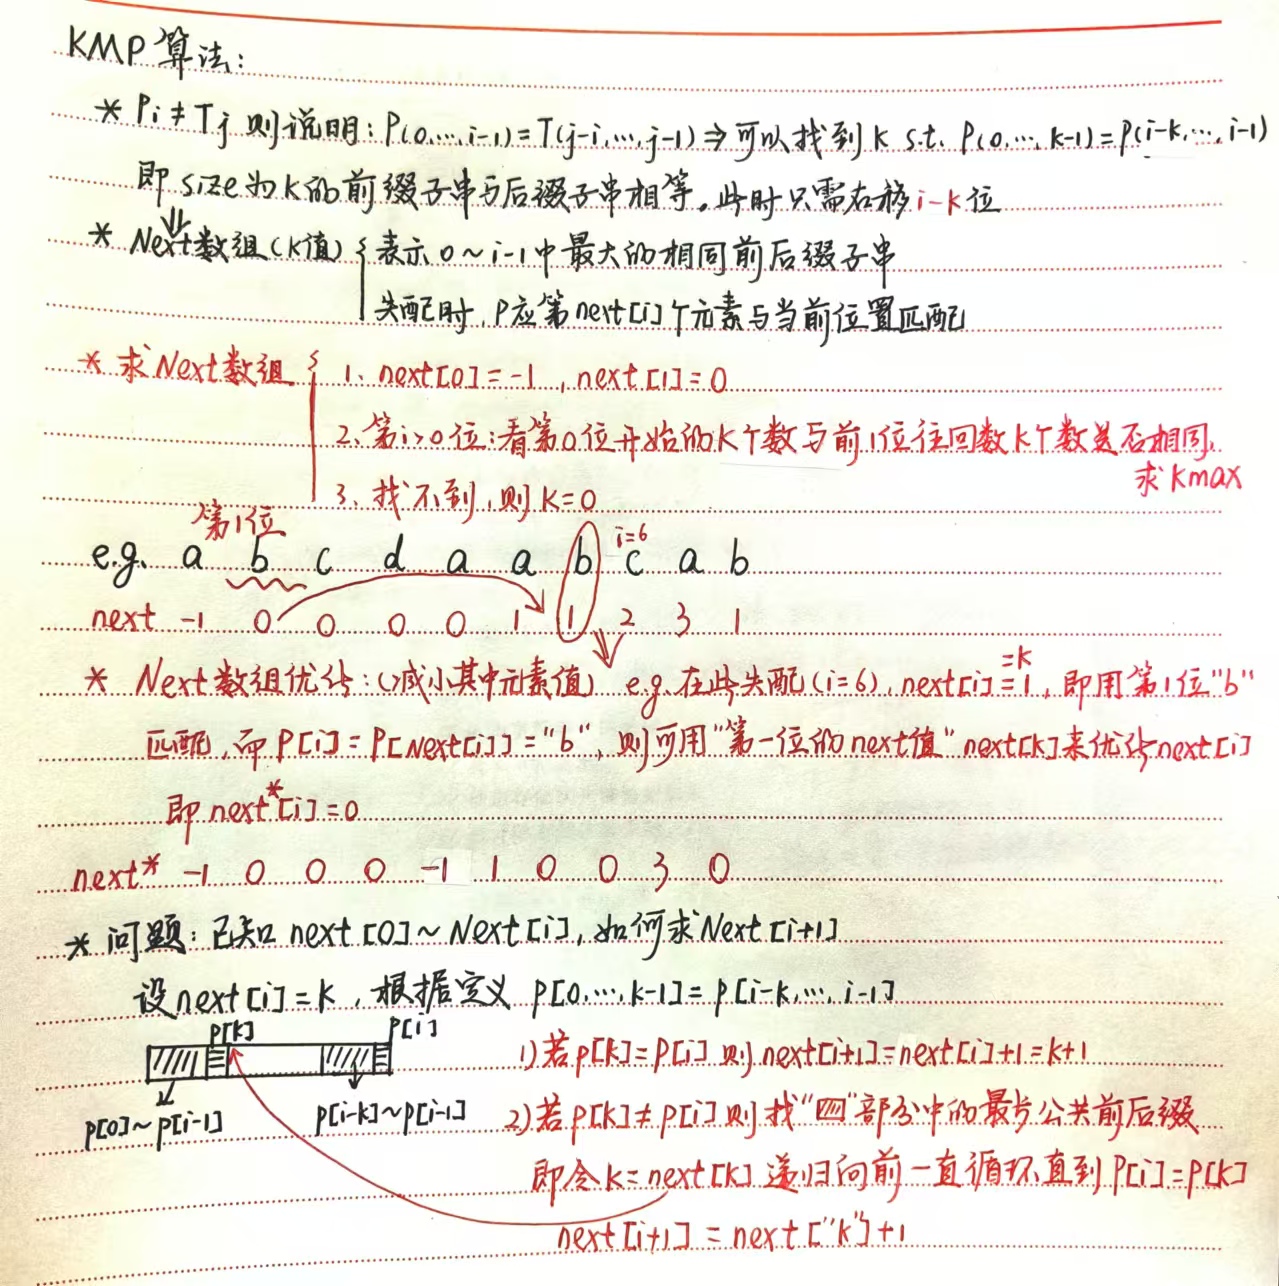 KMP 算法:
* Pi ≠ Tj 则说明: P(0,…,i-1) = T(j-i,…,j-1) ⇒ 可以找到 k s.t. P(0,…,k-1) = P(i-k,…,i-1)
即 size 为 k 的前缀子串与后缀子串相等。此时只需右移 i-k 位
* Next数组(k值) { 表示 0~i-1 中最大的相同前后缀子串
失配时, P应第 next[i] 个元素与当前位置匹配
* 求 Next 数组 { 1、next[0] = -1, next[1] = 0
2、第 i>0 位: 看第0位开始的k个数与前1位往回数k个数是否相同,
求 kmax
3、找不到, 则 k=0
第1位
i=6
e.g. a b c d a a b c a b
next -1 0 0 0 0 1 1 2 3 1
* Next数组优化: (减小其中元素值) e.g. 在此失配 (i=6), next[i] = 1, 即用第1位 "b"
=k
匹配, 而 P[i] = P[Next[i]] = "b", 则可用 "第一位的 next值" next[k] 来优化 next[i]
即 next*[i] = 0
next* -1 0 0 0 -1 1 0 0 3 0
* 问题: 已知 next[0] ~ Next[i], 如何求 Next[i+1]
设 next[i] = k, 根据定义 P[0,…,k-1] = P[i-k,…,i-1]
P[k] P[i]
1) 若 P[k] = P[i] 则 next[i+1] = next[i]+1 = k+1
P[0]~P[i-1] P[i-k]~P[i-1]
2) 若 P[k] ≠ P[i] 则找 " " 部分中的最长公共前后缀
即令 k = next[k] 递归向前一直循环直到 P[i] = P[k]
next[i+1] = next["k"]+1